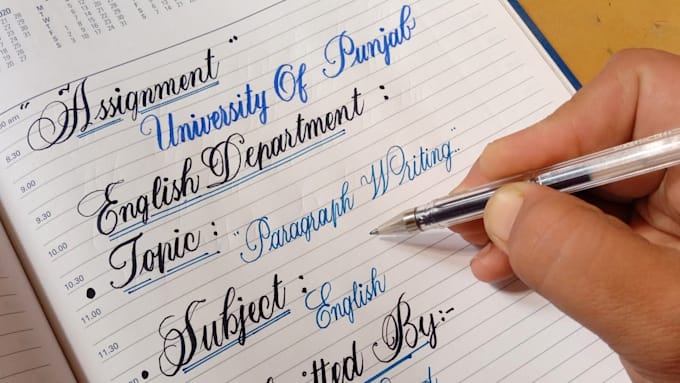 2020
" Assignment "
University Of Punjab
English Department :
• Topic : "Paragraph Writing"
• Subject : English
By:-
8.30
9.00
9.30
10.00
10.30
11.00
11.30